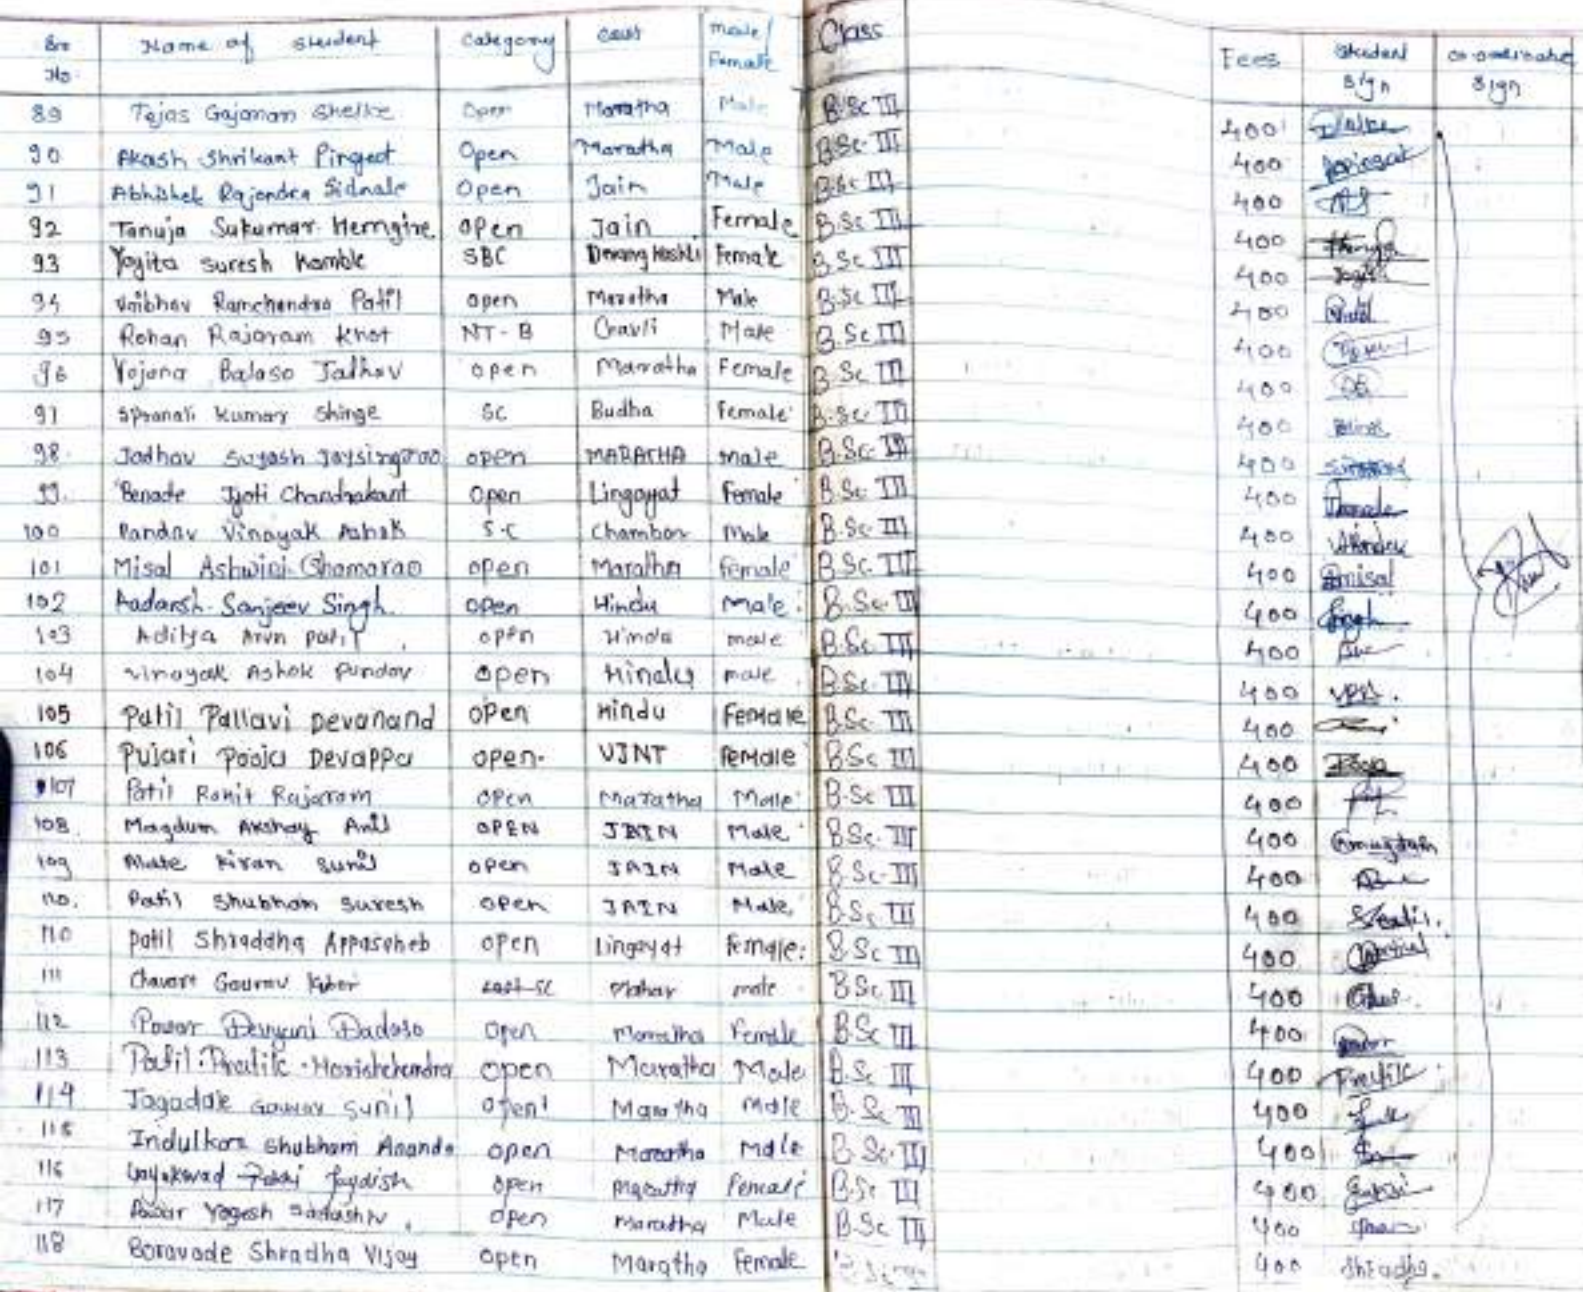 Sr. No. Name of Student Category Cast Male/Female Class Fees Student Sign Co-ordinator Sign
89 Tejas Gajanan Shelke Open Maratha Male B.Sc III 400
90 Akash Shrikant Pingeot Open Maratha Male B.Sc. III 400
91 Abhishek Rajendra Sidnale Open Jain Male B.Sc III 400
92 Tanuja Sukumar Hemgire Open Jain Female B.Sc III 400
93 Yogita Suresh Kamble SBC Female B.Sc III 400
94 Vaibhav Ramchandra Patil Open Maratha Male B.Sc III 400
95 Rohan Rajaram Khot NT-B Male B.Sc III 400
96 Yojana Balaso Jadhav Open Maratha Female B.Sc III 400
97 Kumar Shinge SC Budha Female B.Sc. III 400
98. Jadhav Suyash Jaysingrao open MARATHA male B.Sc. III 400
99. Benade Jyoti Chandrakant Open Lingayat Female B.Sc III 400
100 Pandav Vinayak Ashok S.C Chambar Male B.Sc III 400
101 Misal Ashwini Shamarao open Maratha female B.Sc. III 400 Amisal
102 Aadarsh Sanjeev Singh. Open Hindu Male. B.Sc III 400 Singh
103 Aditya Arun patil open Hindu male B.Sc III 400
104 vinayak Ashok Pundav open Hindu male B.Sc. III 400
105 Patil Pallavi Devanand open Hindu Female B.Sc. III 400
106 Pujari Pooja Devappa open. VJNT Female B.Sc III 400 Pooja
107 Patil Rohit Rajaram Open Maratha Male B.Sc III 400
108. Magdum Akshay Anil OPEN JAIN Male B.Sc. III 400
109 Alate Kiran Sunil open JAIN Male B.Sc. III 400
110. Patil Shubham Suresh open JAIN Male. B.Sc III 400
110 patil Shraddha Appasaheb open Lingayat Female. B.Sc III 400
111 Chavare Gourav SC Mahar male B.Sc III 400
112 Powar Devyani Dadaso Open Maratha Female B.Sc III 400
113 Patil. Pratik. Harishchandra open Maratha Male B.Sc III 400 Pratik
114 Jagadale Gaurav Sunil open Maratha Male B.Sc III 400
115 Indulkar Shubham Ananda open Maratha Male B.Sc. III 400
116 Gayakwad Jaydish open Maratha Female B.Sc III 400
117 Pawar Yogesh Sadashiv. open Maratha Male B.Sc III 400
118 Boravade Shradha Vijay open Maratha Female 400 Shradha.